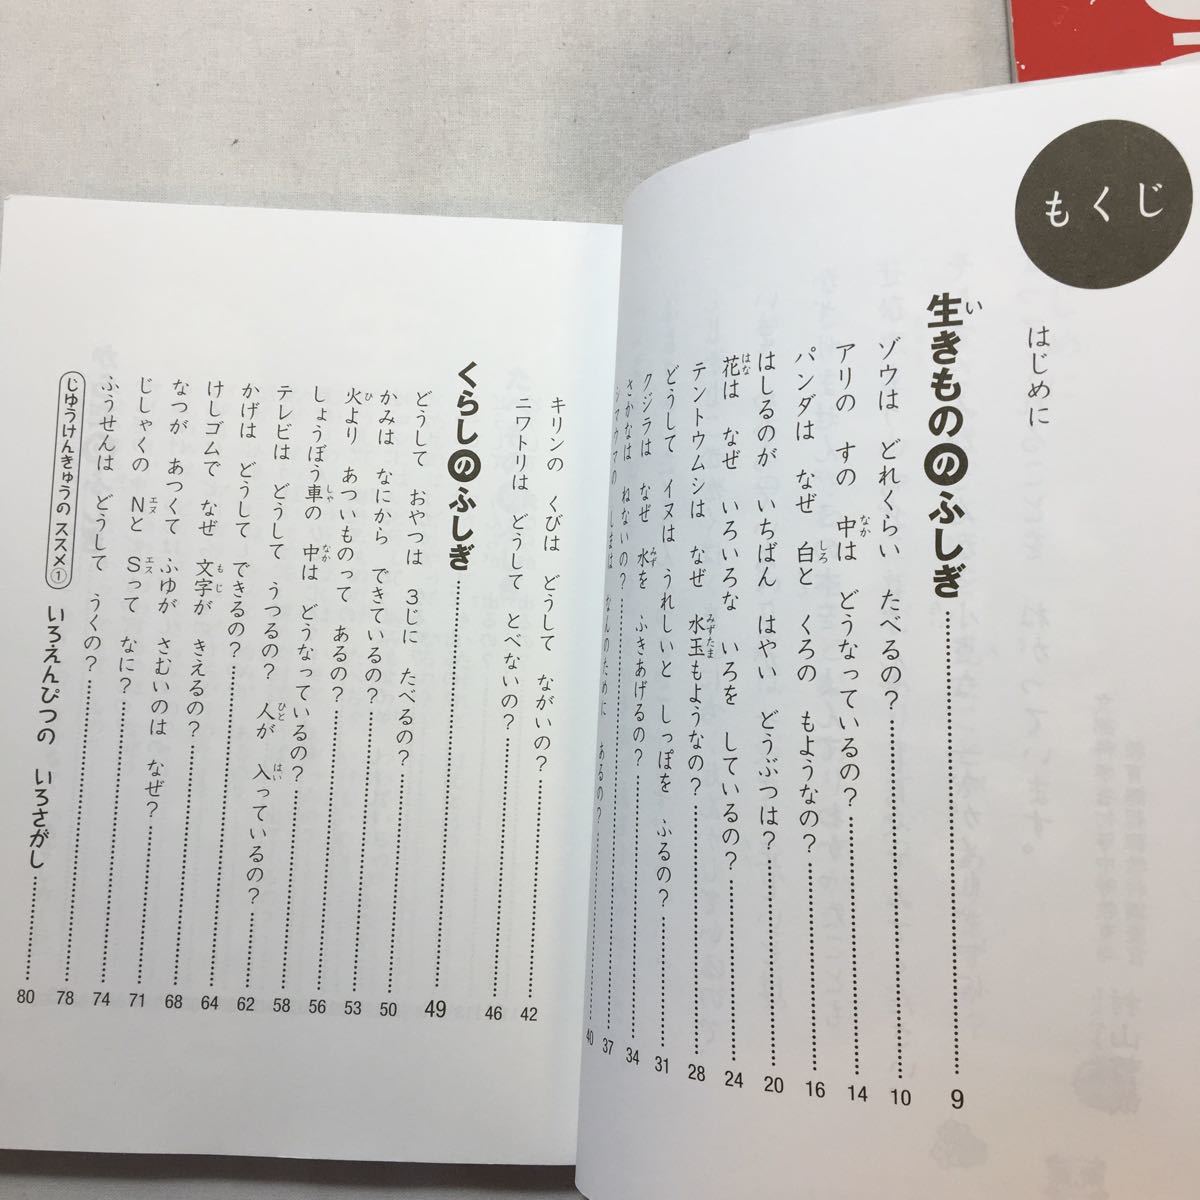 もくじ
はじめに
生きもののふしぎ 9
ゾウは どれくらい たべるの? 10
アリの すの 中は どうなっているの? 14
パンダは なぜ 白と くろの もようなの? 16
はしるのが いちばん はやい どうぶつは? 20
花は なぜ いろいろな いろを しているの? 24
テントウムシは なぜ 水玉もようなの? 28
どうして イヌは うれしいと しっぽを ふるの? 31
クジラは なぜ 水を ふきあげるの? 34
さかなは ねないの? 37
シマウマの しまは なんのために あるの? 40
キリンの くびは どうして ながいの? 42
ニワトリは どうして とべないの? 46
くらしのふしぎ 49
どうして おやつは 3じに たべるの? 50
かみは なにから できているの? 53
火より あついものって あるの? 56
しょうぼう車の 中は どうなっているの? 58
テレビは どうして うつるの? 人が 入っているの? 62
かげは どうして できるの? 64
けしゴムで なぜ 文字が きえるの? 68
なつが あつくて ふゆが さむいのは なぜ? 71
じしゃくの Nと Sって なに? 74
ふうせんは どうして うくの? 78
じゆうけんきゅうの ススメ① いろえんぴつの いろさがし 80